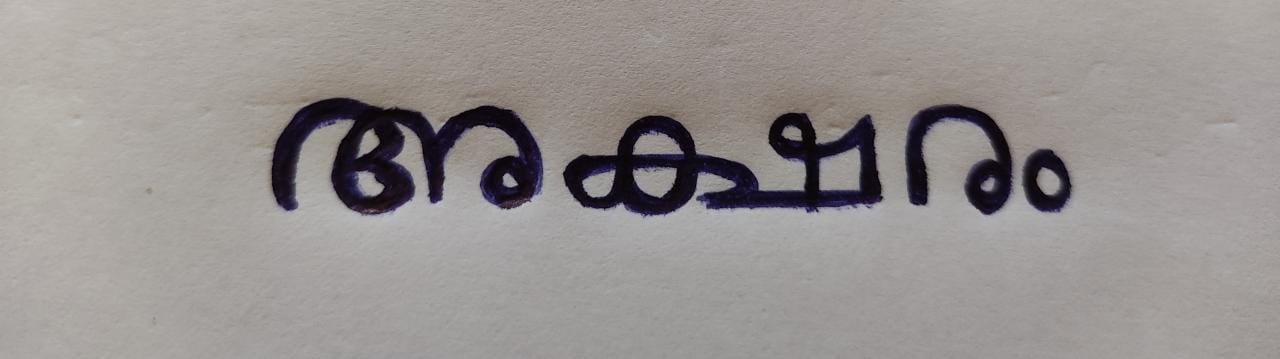 അക്ഷരം